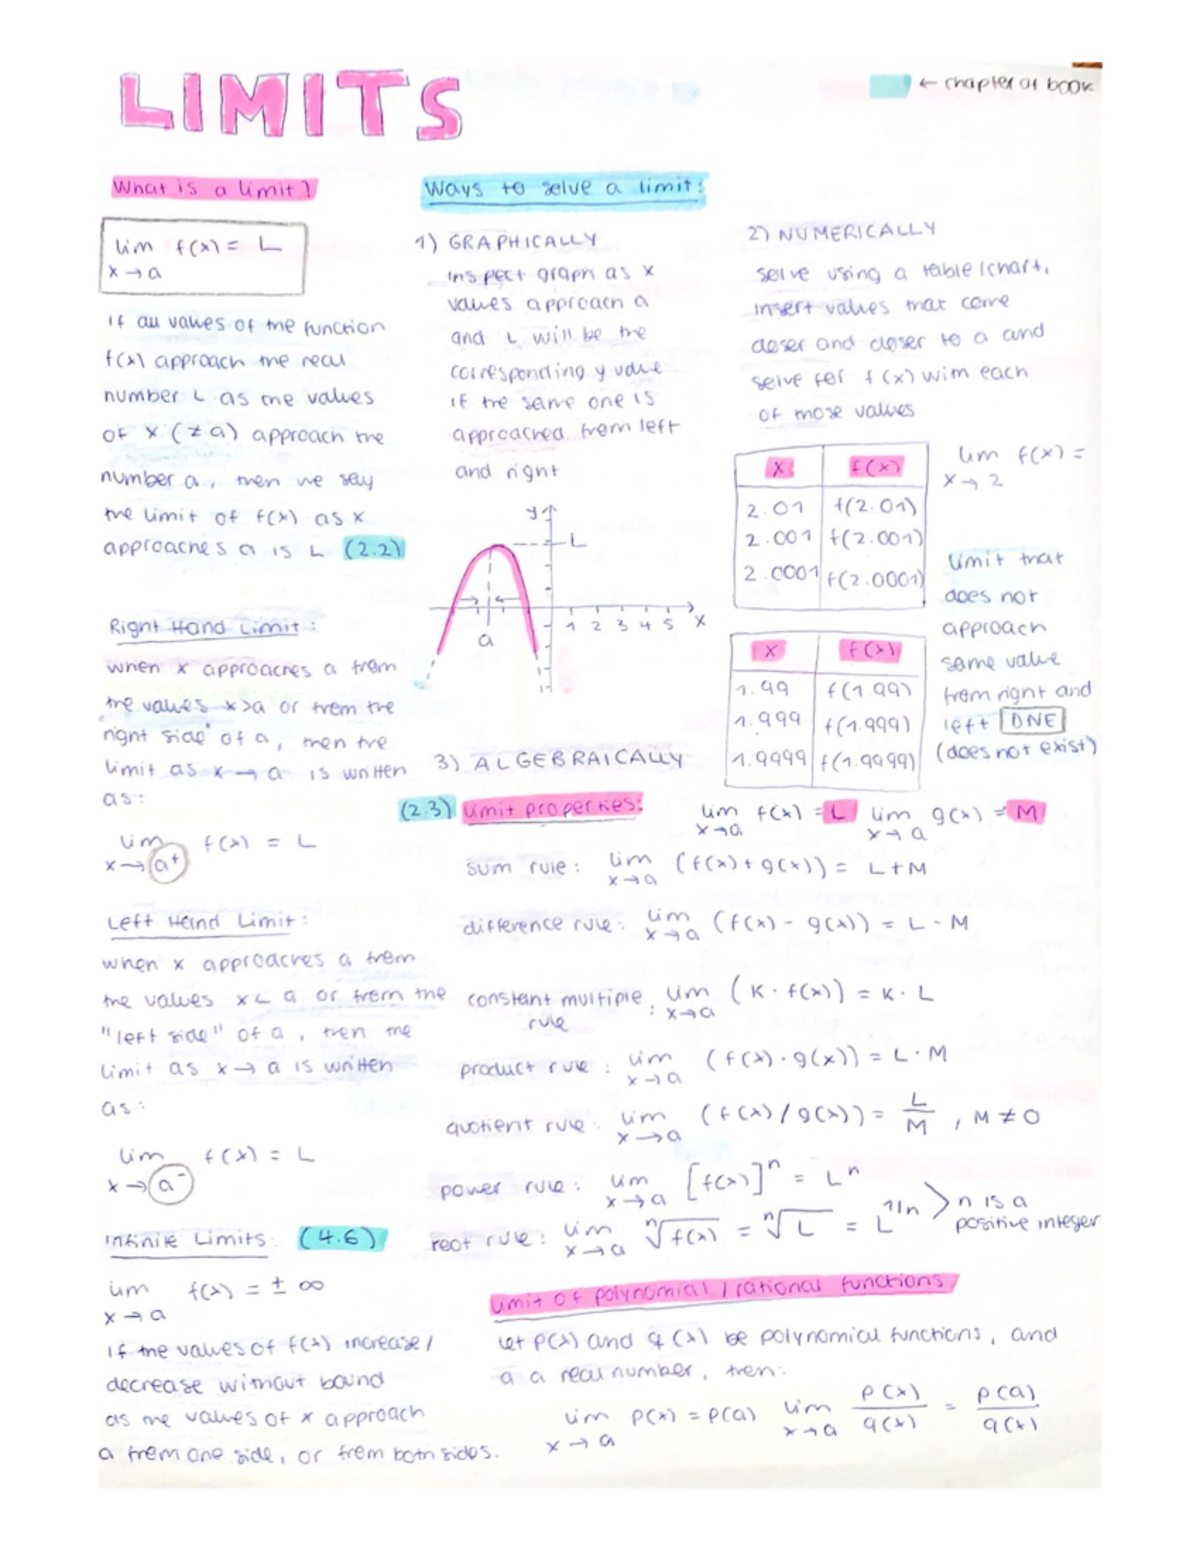 LIMITS
← chapter of book
What is a limit?
lim f(x) = L
x → a
if all values of the function
f(x) approach the real
number L as the values
of x (≠ a) approach the
number a, then we say
the limit of f(x) as x
approaches a is L (2.2)
Right Hand Limit:
when x approaches a from
the values x>a or from the
"right side" of a, then the
limit as x → a is written
as:
lim f(x) = L
x → a⁺
Left Hand Limit:
when x approaches a from
the values x < a or from the
"left side" of a, then the
limit as x → a is written
as:
lim f(x) = L
x → a⁻
Infinite Limits: (4.6)
lim f(x) = ± ∞
x → a
if the values of f(x) increase/
decrease without bound
as the values of x approach
a from one side, or from both sides.
Ways to solve a limit:
1) GRAPHICALLY
inspect graph as x
values approach a
and L will be the
corresponding y value
if the same one is
approached from left
and right
y
L
a
1 2 3 4 5 x
2) NUMERICALLY
solve using a table/chart,
insert values that come
closer and closer to a and
solve for f(x) with each
of those values
x f(x)
2.01 f(2.01)
2.001 f(2.001)
2.0001 f(2.0001)
x f(x)
1.99 f(1.99)
1.999 f(1.999)
1.9999 f(1.9999)
lim f(x) =
x → 2
limit that
does not
approach
same value
from right and
left DNE
(does not exist)
3) ALGEBRAICALLY
(2.3) limit properties: lim f(x) = L lim g(x) = M
x→a x→a
sum rule: lim (f(x)+g(x)) = L+M
x→a
difference rule: lim (f(x) - g(x)) = L - M
x→a
constant multiple : lim (K · f(x)) = K · L
rule x→a
product rule: lim (f(x) · g(x)) = L · M
x→a
quotient rule: lim (f(x)/g(x)) = L/M , M ≠ 0
x→a
power rule: lim [f(x)]ⁿ = Lⁿ
x→a
root rule: lim ⁿ√f(x) = ⁿ√L = L^1/n > n is a
x→a positive integer
limit of polynomial/rational functions
let p(x) and q(x) be polynomial functions, and
a a real number, then:
lim p(x) = p(a) lim p(x)/q(x) = p(a)/q(x)
x → a x→a